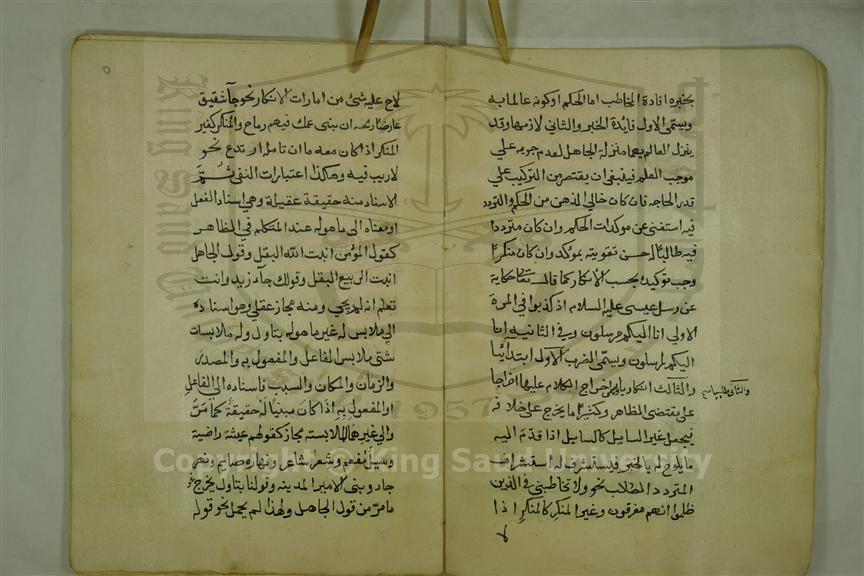 بخبره افادة المخاطب اما الحكم او كونه عالما به
ويسمى الاول فايدة الخبر والثاني لازمها وقد
ينزل العالم بهما منزلة الجاهل لعدم جريه على
موجب العلم فينبغي ان يقتصر من التركيب على
قدر الحاجه فان كان خالي الذهن من الحكم والتردد
فيه استغنى عن موكدات الحكم وان كان مترددا
فيه طالبا له حسن تقويته بموكد وان كان منكرا
وجب توكيده بحسب الانكار كما قال تعالى حكاية
عن رسل عيسى عليه السلام اذ كذبوا في المرة
الاولى انا اليكم مرسلون وفي الثانيه انا
اليكم لمرسلون ويسمى الضرب الاول ابتدائيا
والثاني طلبيا
والثالث انكاريا واخراج الكلام عليها اخراجا
على مقتضى الظاهر وكثيرا ما يخرج على خلافه
فيجعل غير السايل كالسايل اذا قدم اليه
ما يلوح له بالخبر فيستشرف له استشراف
المتردد الطالب نحو ولا تخاطبني في الذين
ظلموا انهم مغرقون وغير المنكر كالمنكر اذا
لا
٥
لاح عليه شئ من امارات الانكار نحو جآ شقيق
عارضا رمحه ان بنى عمك فيهم رماح والمنكر كغير
المنكر اذا كان معه ما ان تامله ارتدع نحو
لا ريب فيه وهكذا اعتبارات النفي ثم
الاسناد منه حقيقة عقلية وهي اسناد الفعل
او معناه الى ما هو له عند المتكلم في الظاهر
كقول المؤمن انبت الله البقل وقول الجاهل
انبت الربيع البقل وقولك جآء زيد وانت
تعلم انه لم يجي ومنه مجاز عقلي وهو اسناده
الى ملابس له غير ما هو له بتاول وله ملابسات
شتى ملابس الفاعل والمفعول به والمصدر
والزمان والمكان والسبب فاسناده الى الفاعل
او المفعول به اذا كان مبنيا له حقيقة كما مر
والى غيرهما للملابسه مجاز كقولهم عيشة راضية
وسيل مفعم وشعر شاعر ونهاره صايم ونهر
جار وبنى الامير المدينه وقولنا بتاول يخرج نحو
ما مر من قول الجاهل ولهذا لم يحمل نحو قوله
Copyright © King Saud University
1957